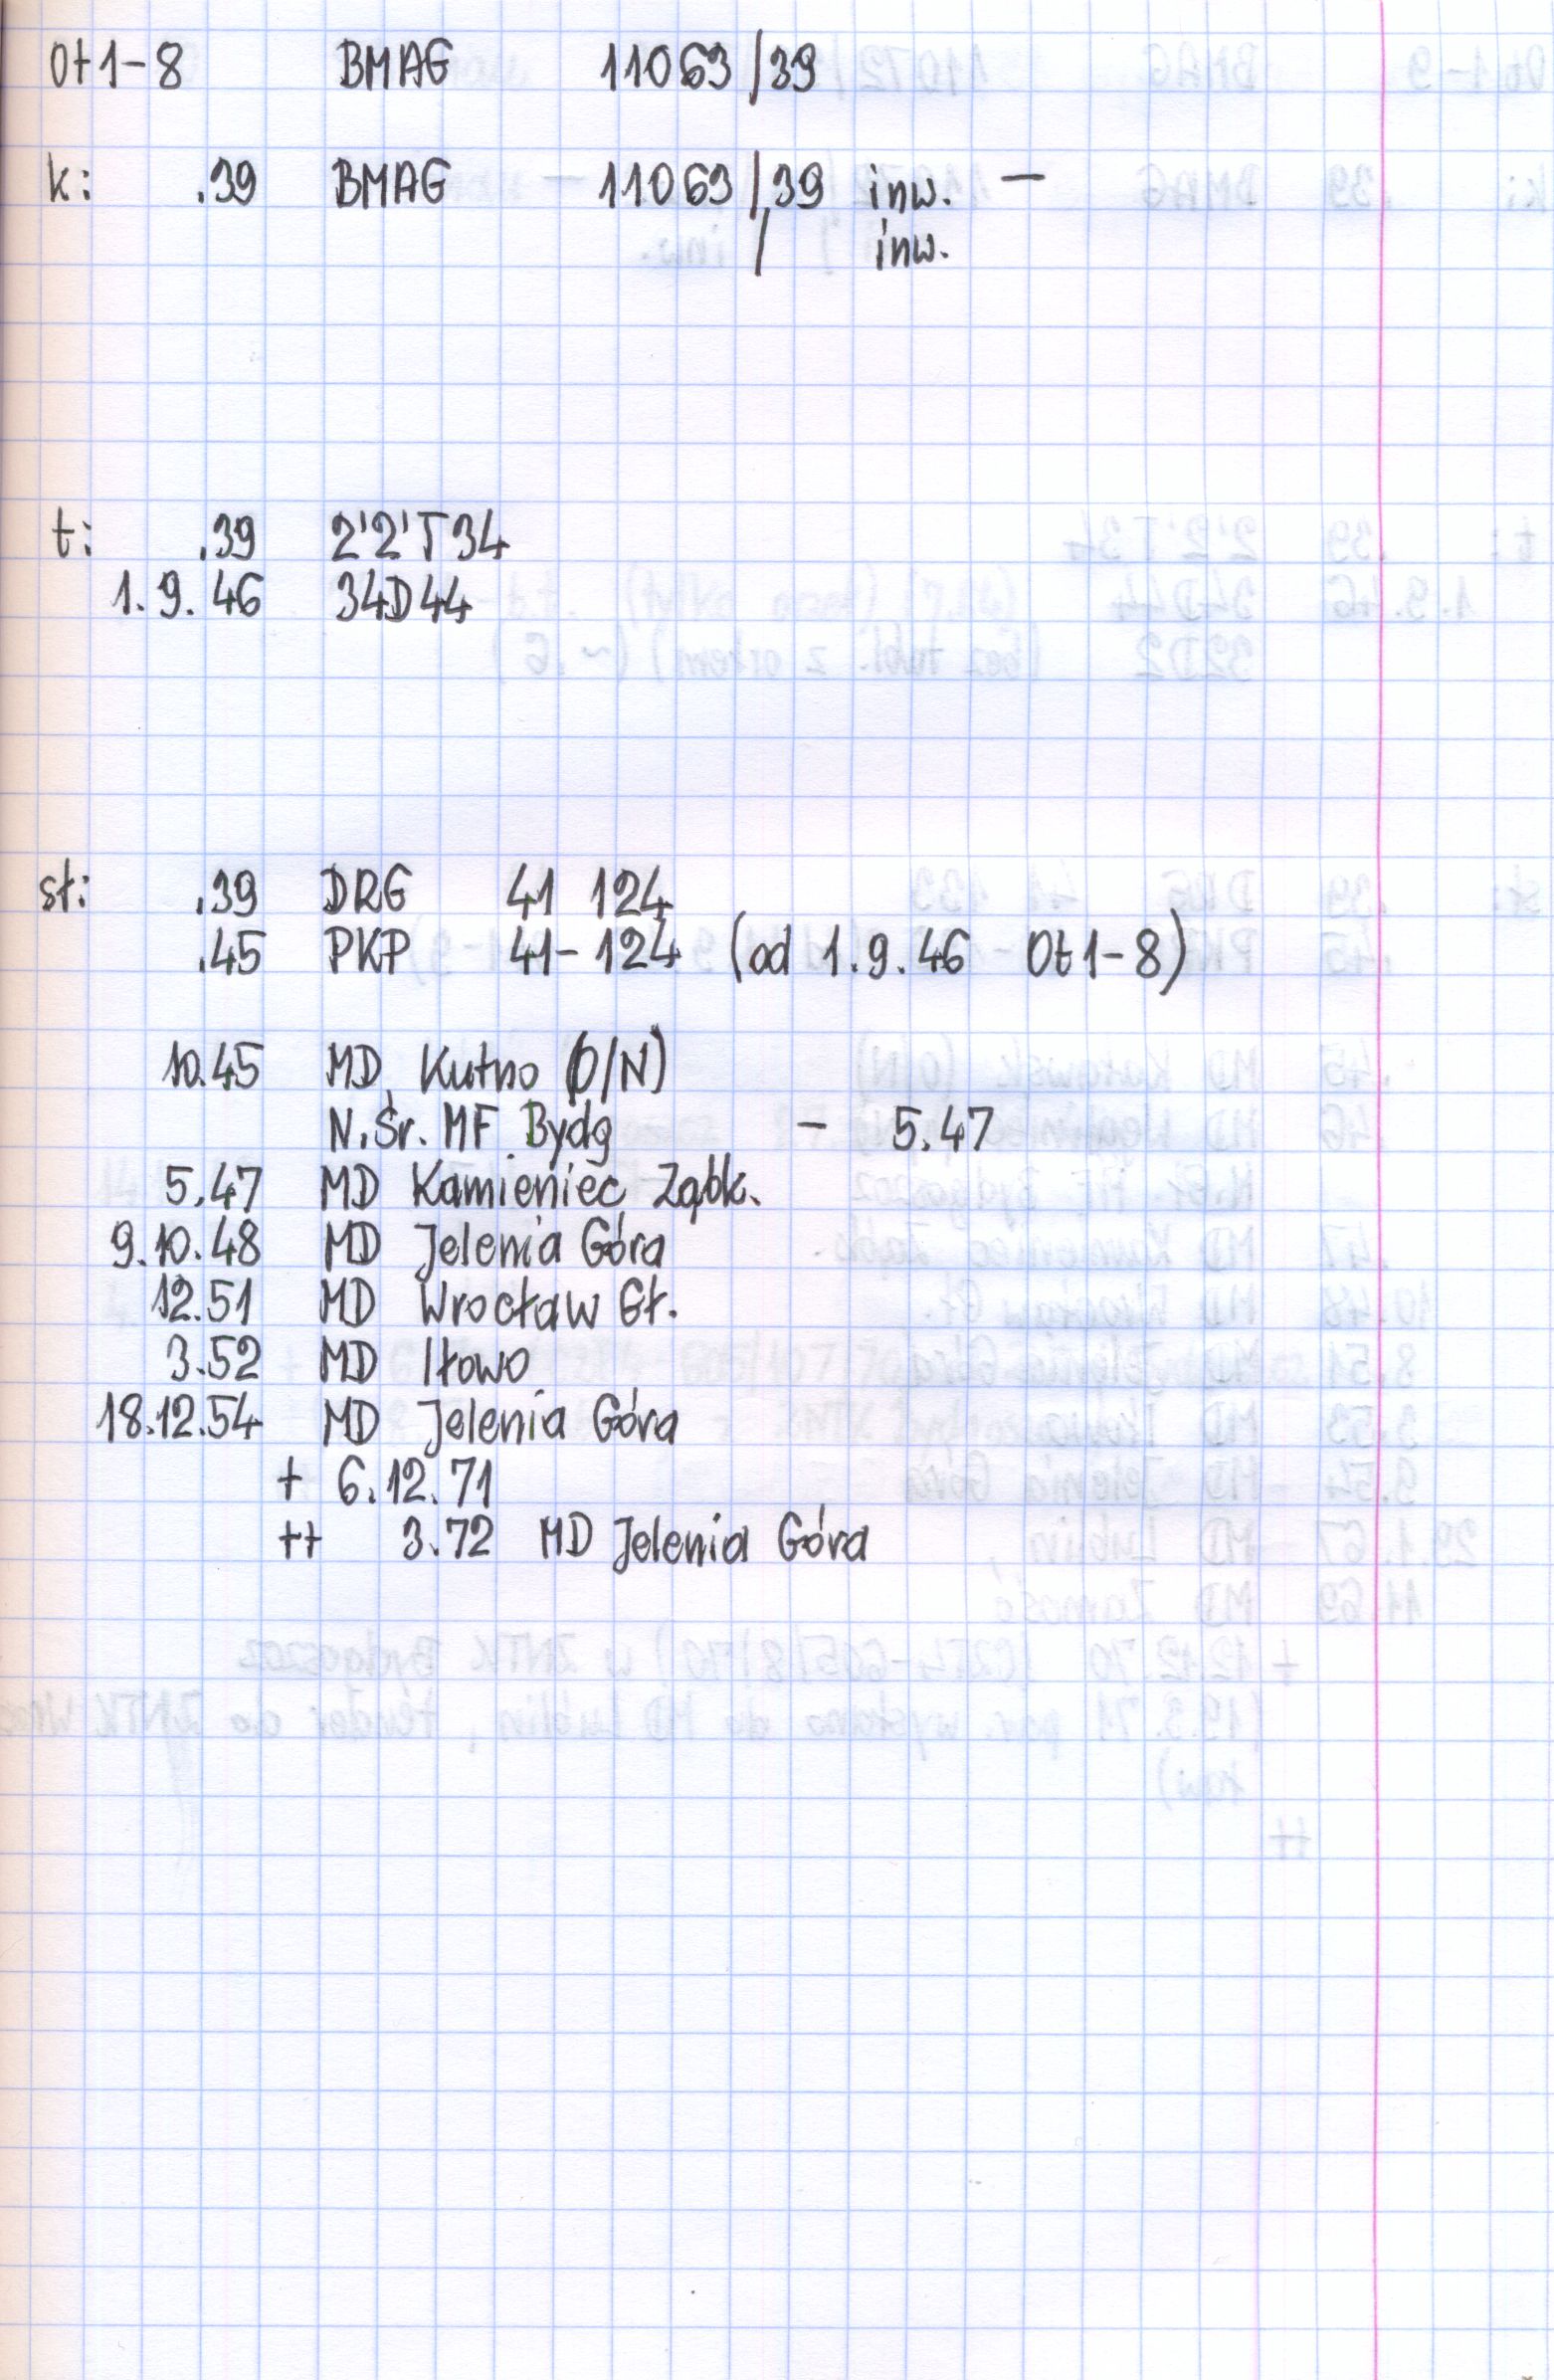 Ot1-8 BMAG 11063/39
k: .39 BMAG 11063/39 inw. -
/ inw.
t: .39 2'2'T34
1.9.46 34D44
sł: .39 DRG 41 124
.45 PKP 41-124 (od 1.9.46 Ot1-8)
10.45 MD Kutno (O/N)
N.Śr. MF Bydg - 5.47
5.47 MD Kamieniec Ząbk.
9.10.48 MD Jelenia Góra
12.51 MD Wrocław Gł.
3.52 MD Iłowo
18.12.54 MD Jelenia Góra
+ 6.12.71
++ 3.72 MD Jelenia Góra